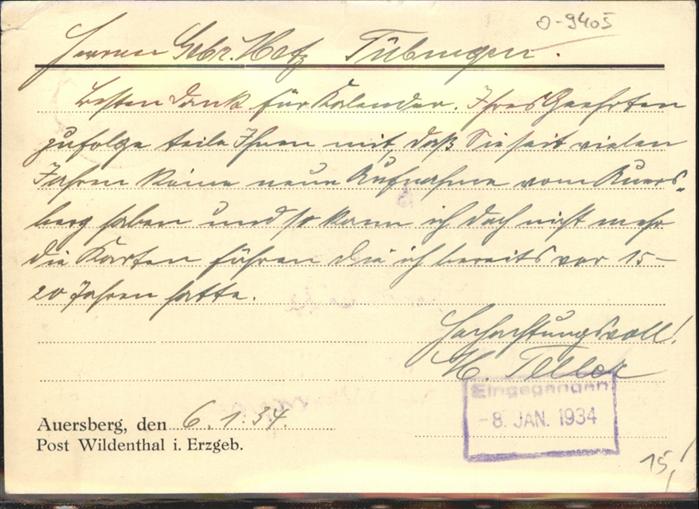 0-9405
Herren Gebr. Metz Tübingen.
Besten Dank für Kalender. Ihres Geehrten
zufolge teile Ihnen mit daß Sie seit vielen
Jahren keine neue Aufnahme vom Auers-
berg haben und so kann ich doch nicht mehr
die Karten führen die ich bereits vor 15–
20 Jahren hatte.
Hochachtungsvoll!
Eingegangen
-8. JAN. 1934
Auersberg, den 6.1.34.
Post Wildenthal i. Erzgeb.
15,